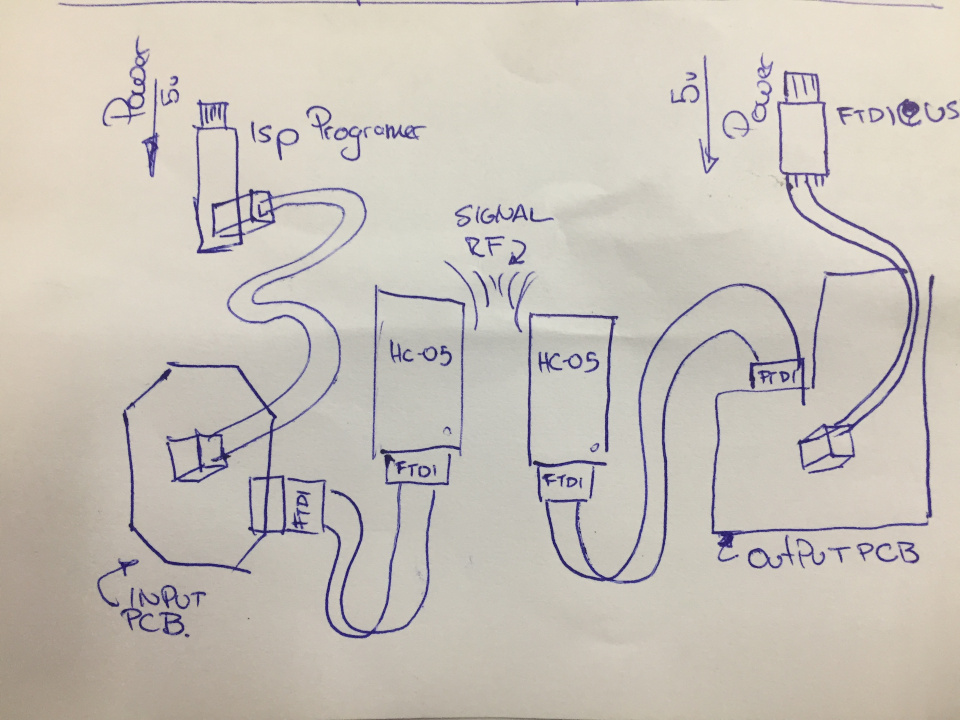 Power
5v
Isp Programer
SIGNAL
RF
HC-05
FTDI
INPUT
PCB.
FTDI
HC-05
FTDI
5v
Power
FTDI US
FTDI
OUTPUT PCB